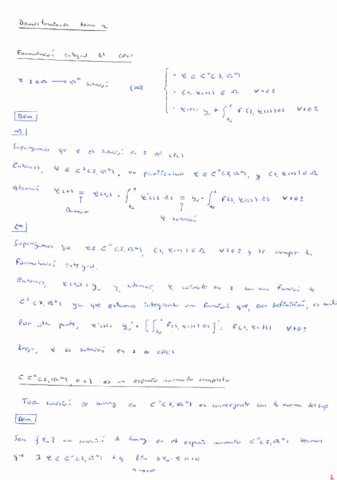 Demostraciones tema 2
Formulación integral del (PC)
φ: I → ℝⁿ solución (⇔) · φ ∈ C⁰(I, ℝⁿ)
· (t, φ(t)) ∈ Ω ∀t∈I
· φ(t) = y₀ + ∫ f(s, φ(s)) ds ∀t∈I
Dem.
⇒)
Supongamos que φ es solución en I del (PC)
Entonces, φ ∈ C¹(I, ℝⁿ), en particular φ ∈ C⁰(I, ℝⁿ), y (t, φ(t)) ∈ Ω
Además φ(t) = φ(t₀) + ∫ φ'(s) ds = y₀ + ∫ f(s, φ(s)) ds ∀t∈I
Barrow φ solución
⇐)
Supongamos que φ ∈ C⁰(I, ℝⁿ), (t, φ(t)) ∈ Ω ∀t∈I y se cumple la
formulación integral.
Entonces, φ(t₀) = y₀ y, además, φ coincide en I con una función de
C¹(I, ℝⁿ) ya que estamos integrando una función que, por definición, es
Por otra parte, φ'(t) = y₀' + [∫ f(s, φ(s)) ds]' = f(t, φ(t)) ∀t∈I
Luego, φ es solución en I de (PC)
(C⁰(I, ℝⁿ), ‖·‖) es un espacio normado completo
Toda sucesión de Cauchy en C⁰(I, ℝⁿ) es convergente con la norma del sup
Dem.
Sea {φₙ} una sucesión de Cauchy en el espacio normado C⁰(I, ℝⁿ). Veamos
que ∃ φ ∈ C⁰(I, ℝⁿ) t.q. lim ‖φₙ - φ‖ = 0
n→∞
1